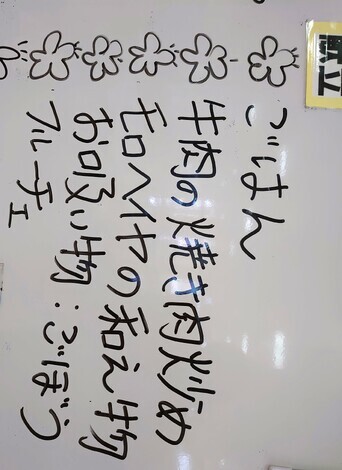 献立
ごはん
牛肉の焼き肉炒め
モロヘイヤの和え物
お吸い物:ごぼう
フルーチェ